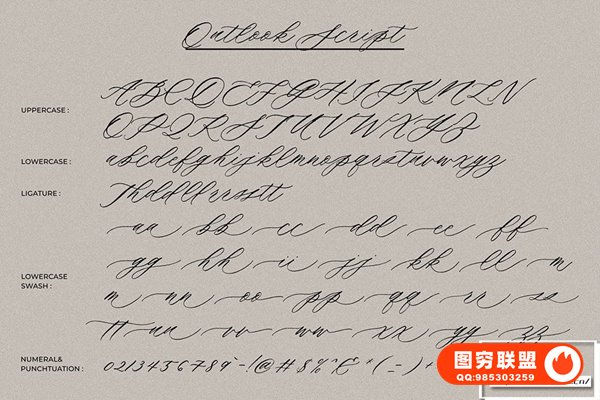 Outlook Script
UPPERCASE :
ABCDEFGHIJKLMN
OPQRSTUVWXYZ
LOWERCASE : abcdefghijklmnopqrstuvwxyz
LIGATURE : Thddllrrsstt
LOWERCASE
SWASH :
aa bb cc dd ee ff
gg hh ii jj kk ll m
m nn oo pp qq rr ss
tt uu vv ww xx yy zz
NUMERAL&
PUNCHTUATION :
0123456789
图穷联盟
QQ:985303259